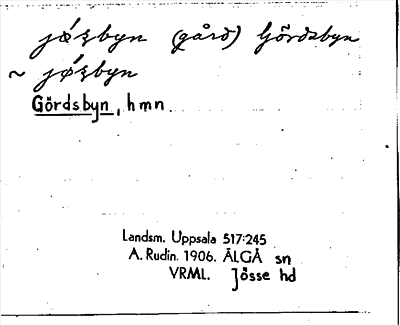 jǿꞩbyn (gård) Gördsbyn
~ jǿꞩbyn
Gördsbyn, hmn
Landsm. Uppsala 517:245
A. Rudin. 1906. ÄLGÅ sn
VRML. Jösse hd